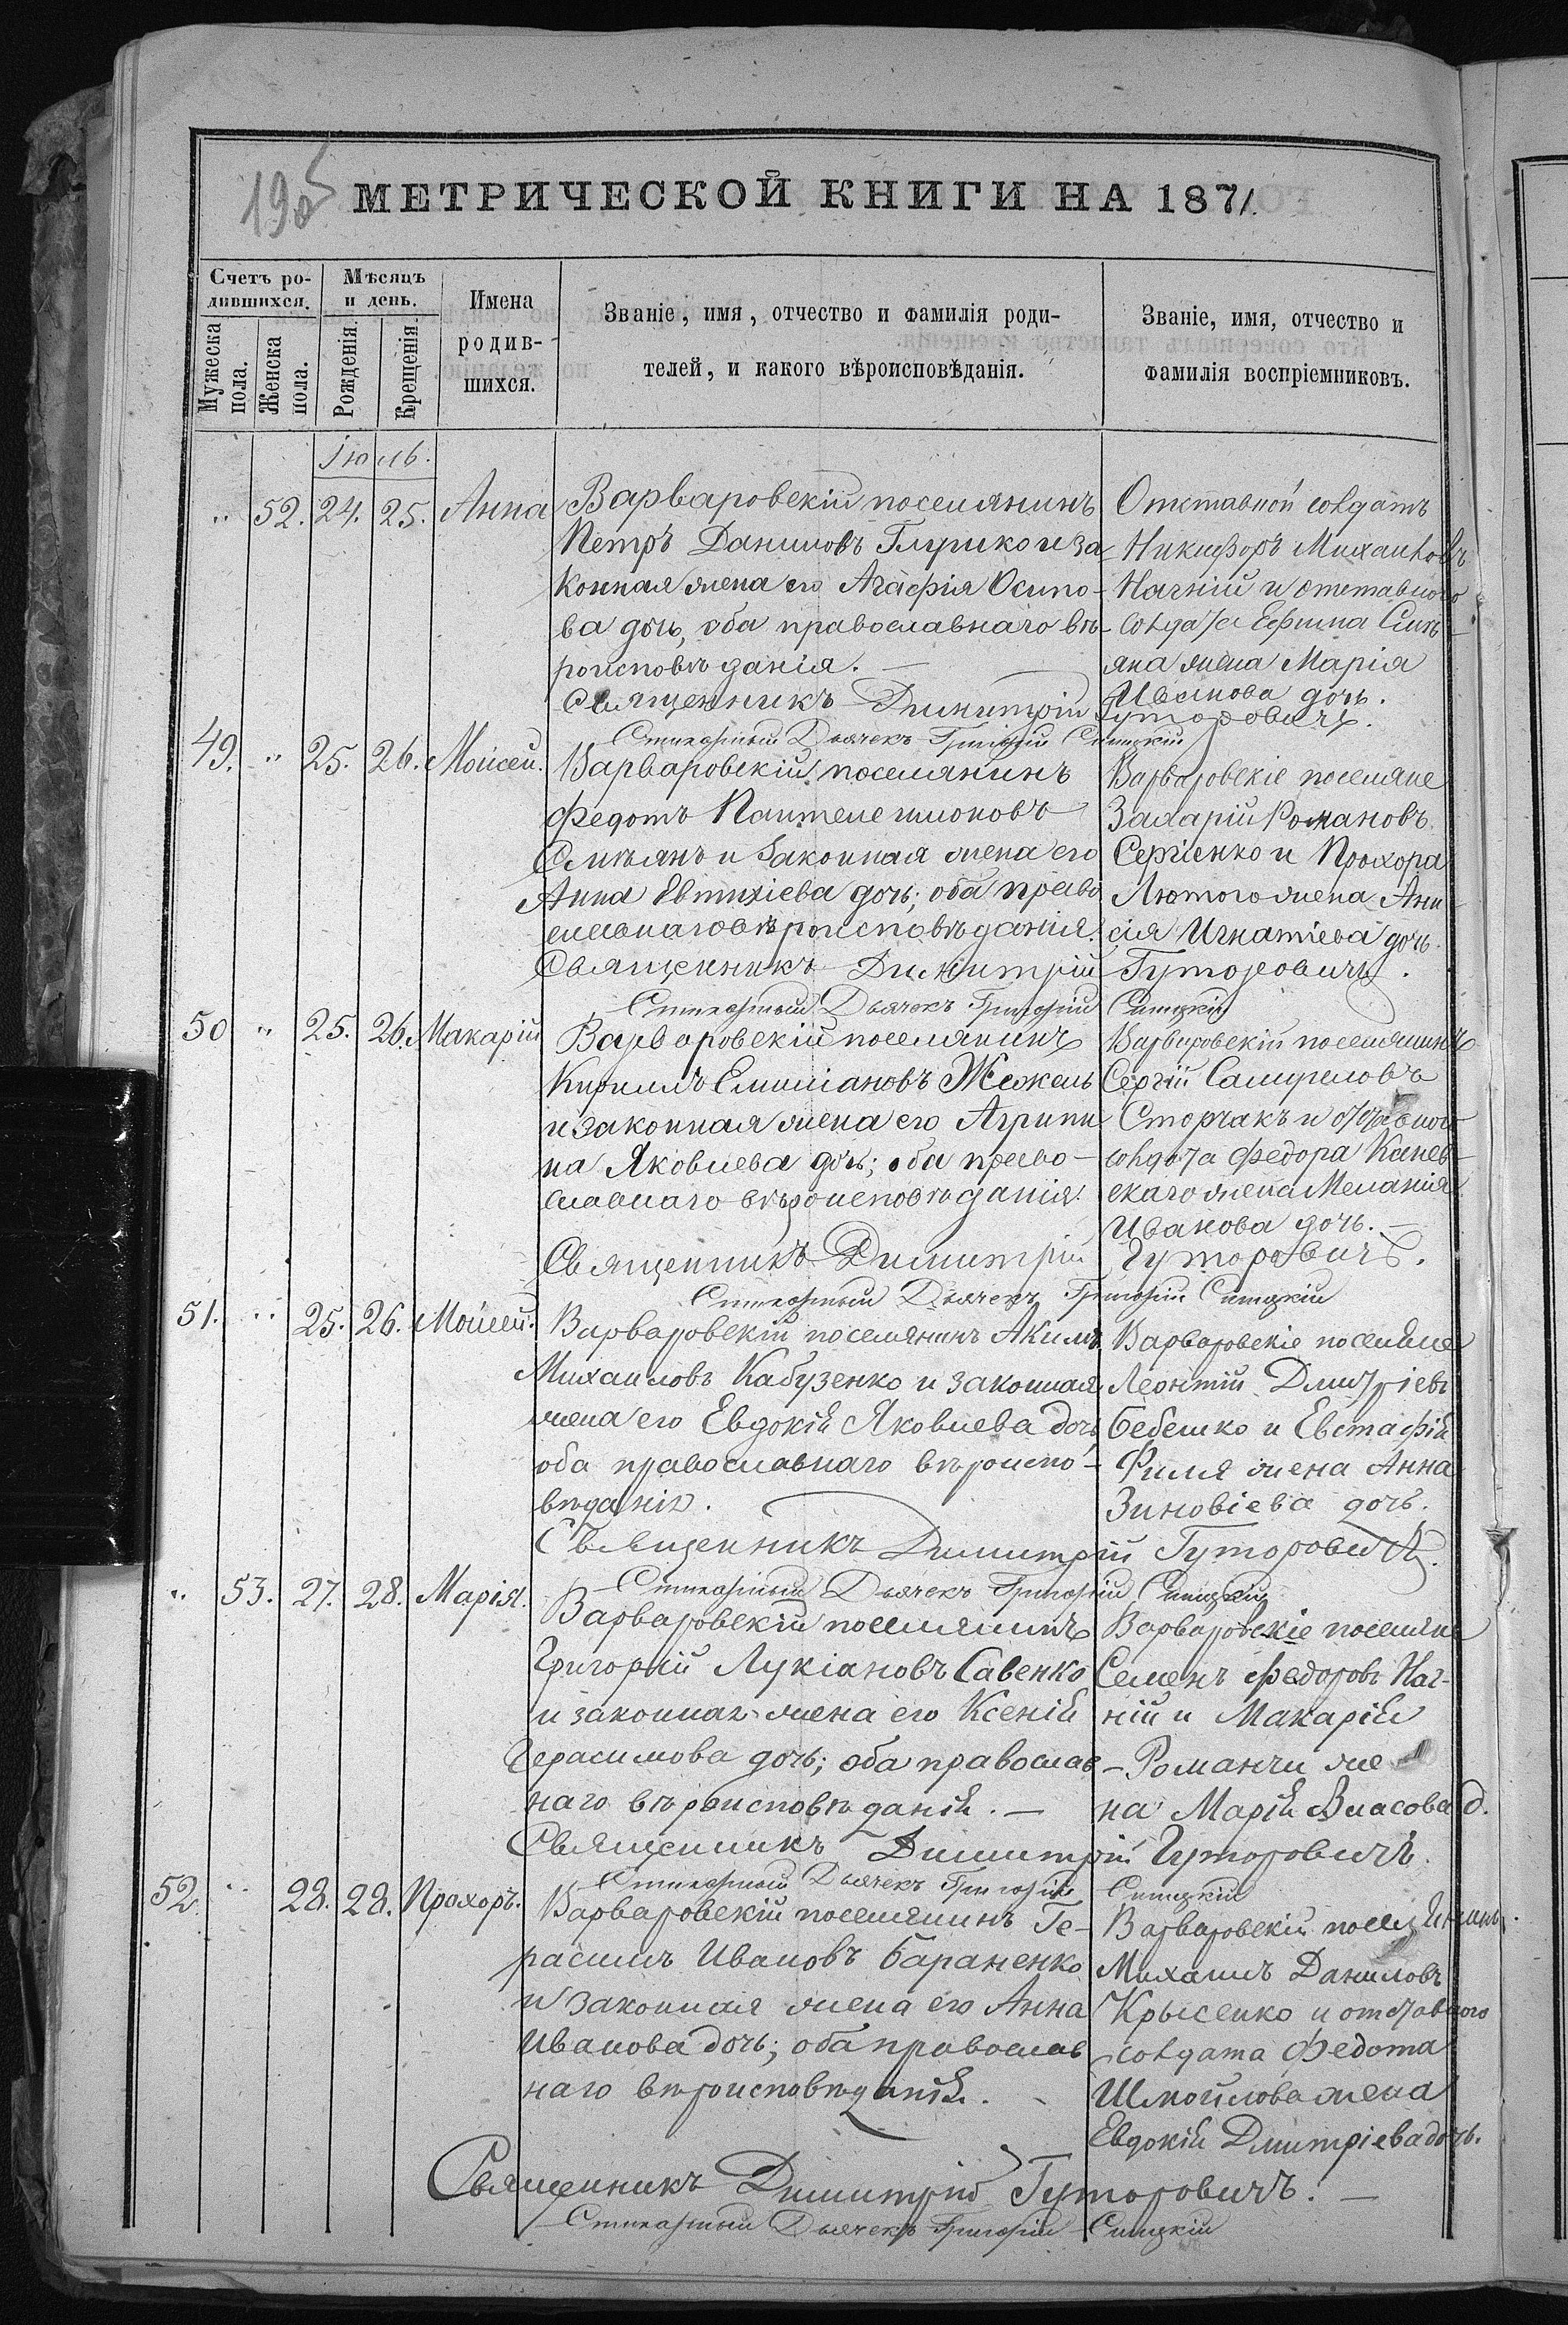 190
МЕТРИЧЕСКОЙ КНИГИ НА 1871.
Счетъ ро-
дившихся.
Мужеска
пола.
Женска
пола.
Мѣсяцъ
и день.
Рожденія.
Крещенія.
Имена
родив-
шихся.
Званіе, имя, отчество и фамилія роди-
телей, и какого вѣроисповѣданія.
Званіе, имя, отчество и
фамилія воспріемниковъ.
Іюль.
" 52. 24. 25. Анна
Варваровскій поселянинъ
Петръ Даниловъ Глушко и за-
конная жена его Агафія Осипо-
ва дочь, оба православнаго вѣ-
роисповѣданія. —
Отставной солдатъ
Никифоръ Михаиловъ
Нагній и отставного
солдата Ефима Смѣ-
яна жена Марія
Иванова дочь.
Священникъ Димитрій Гуторовичъ.
Стихарный Дьячекъ Григорій Синицкій
49. " 25. 26. Моисей.
Варваровскій поселянинъ
Федотъ Пантелеимоновъ
Смѣянъ и законная жена его
Анна Евтихіева дочь; оба право
славнаго вѣроисповѣданія.
Варваровскіе поселяне
Захарій Романовъ
Сергіенко и Прохора
Лютого жена Ани-
сія Игнатіева дочь.
Священникъ Димитрій Гуторовичъ.
Стихарный Дьячекъ Григорій Синицкій
50 " 25. 26. Макарій
Варваровскій поселянинъ
Кириллъ Емиліановъ Жежель
и законная жена его Агрипи
на Яковлева дочь; оба право-
славнаго вѣроисповѣданія.
Варваровскій поселянинъ
Сергій Самуиловъ
Сторчакъ и отставного
солдата Федора Канев-
скаго жена Меланія
Иванова дочь. —
Священникъ Димитрій Гуторовичъ.
Стихарный Дьячекъ Григорій Синицкій
51. " 25. 26. Моисей.
Варваровскій поселянинъ Акимъ
Михаиловъ Кабузенко и законная
жена его Евдокія Яковлева дочь,
оба православнаго вѣроиспо-
вѣданія.
Варваровскіе поселяне
Леонтій Дмитріевъ
Бебешко и Евстафія
Филя жена Анна
Зиновіева дочь.
Священникъ Димитрій Гуторовичъ.
Стихарный Дьячекъ Григорій Синицкій
" 53. 27. 28. Марія.
Варваровскій поселянинъ
Григорій Лукіановъ Савенко
и законная жена его Ксенія
Герасимова дочь; оба православ
наго вѣроисповѣданія. —
Варваровскіе поселяне
Семенъ Федоровъ Наг-
ній и Макарія
Романчи же
на Марія Власова д.
Священникъ Димитрій Гуторовичъ.
Стихарный Дьячекъ Григорій Синицкій
52. " 28. 28. Прохоръ.
Варваровскій поселянинъ Ге-
расимъ Ивановъ Бараненко
и законная жена его Анна
Иванова дочь; оба православ
наго вѣроисповѣданія.
Варваровскій поселянинъ
Михаилъ Даниловъ
Крысенко и отставного
солдата Федота
Шмойлова жена
Евдокія Дмитріева дочь.
Священникъ Димитрій Гуторовичъ. —
Стихарный Дьячекъ Григорій Синицкій